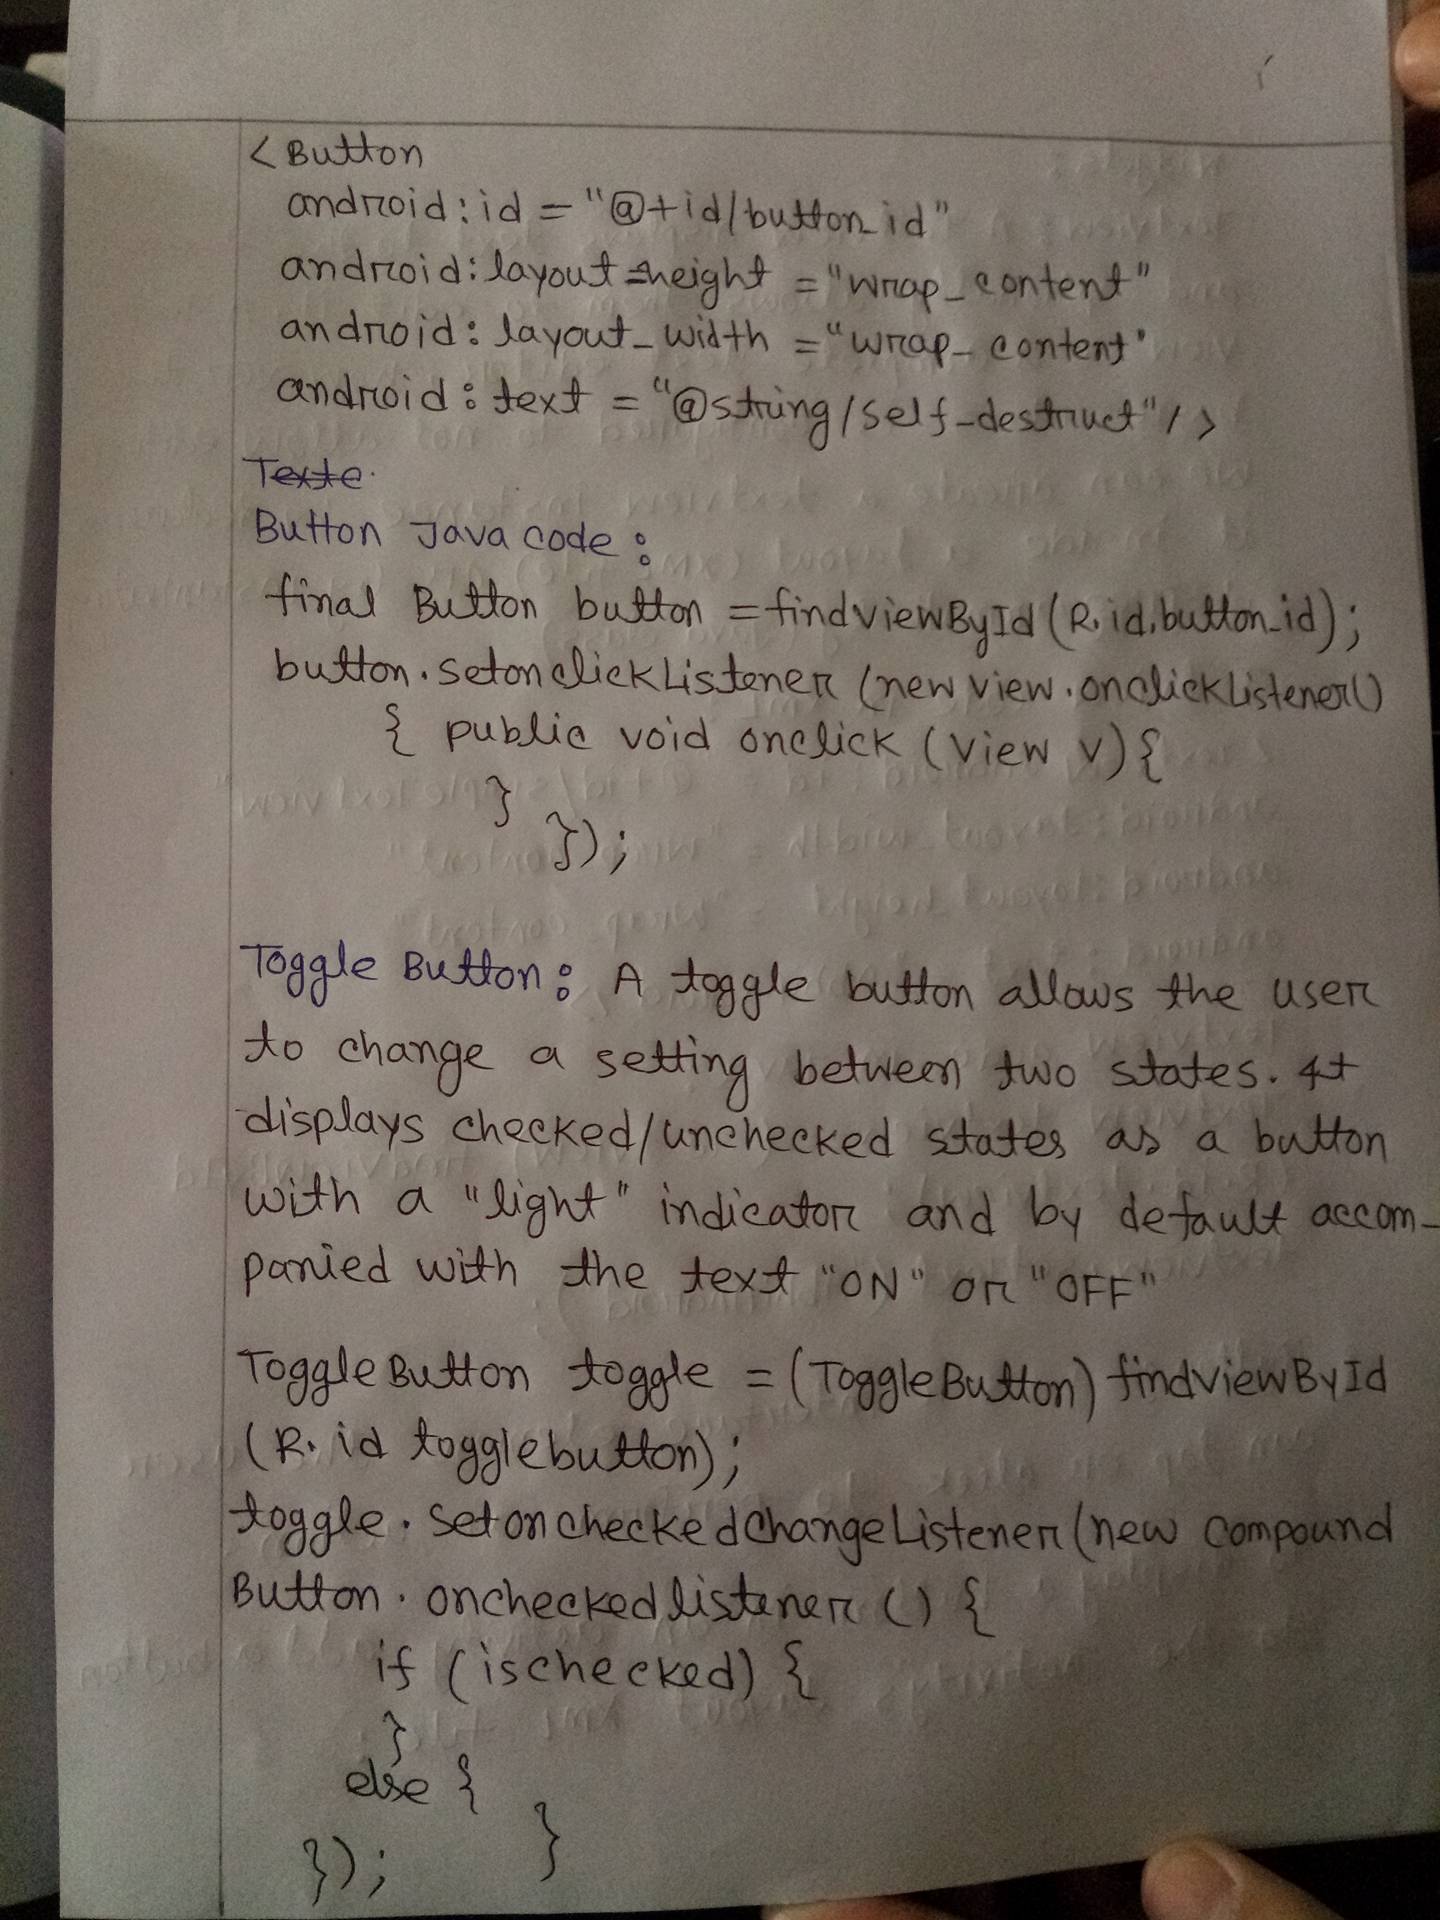 < Button
android:id = "@+id/button_id"
android:layout_height = "wrap_content"
android:layout_width = "wrap_content"
android:text = "@string/self_destruct"/>
Texte.
Button Java code:
final Button button = findViewById(R.id.button_id);
button.setonclickListener (new view.onclickListener()
{ public void onclick (View v){
}
});
Toggle Button: A toggle button allows the user
to change a setting between two states. It
displays checked/unchecked states as a button
with a "light" indicator and by default accom-
panied with the text "ON" or "OFF"
ToggleButton toggle = (ToggleButton) findviewById
(R. id togglebutton);
toggle. setoncheckedchangeListener(new compound
Button. oncheckedlistener () {
if (ischecked) {
}
else {
}
});